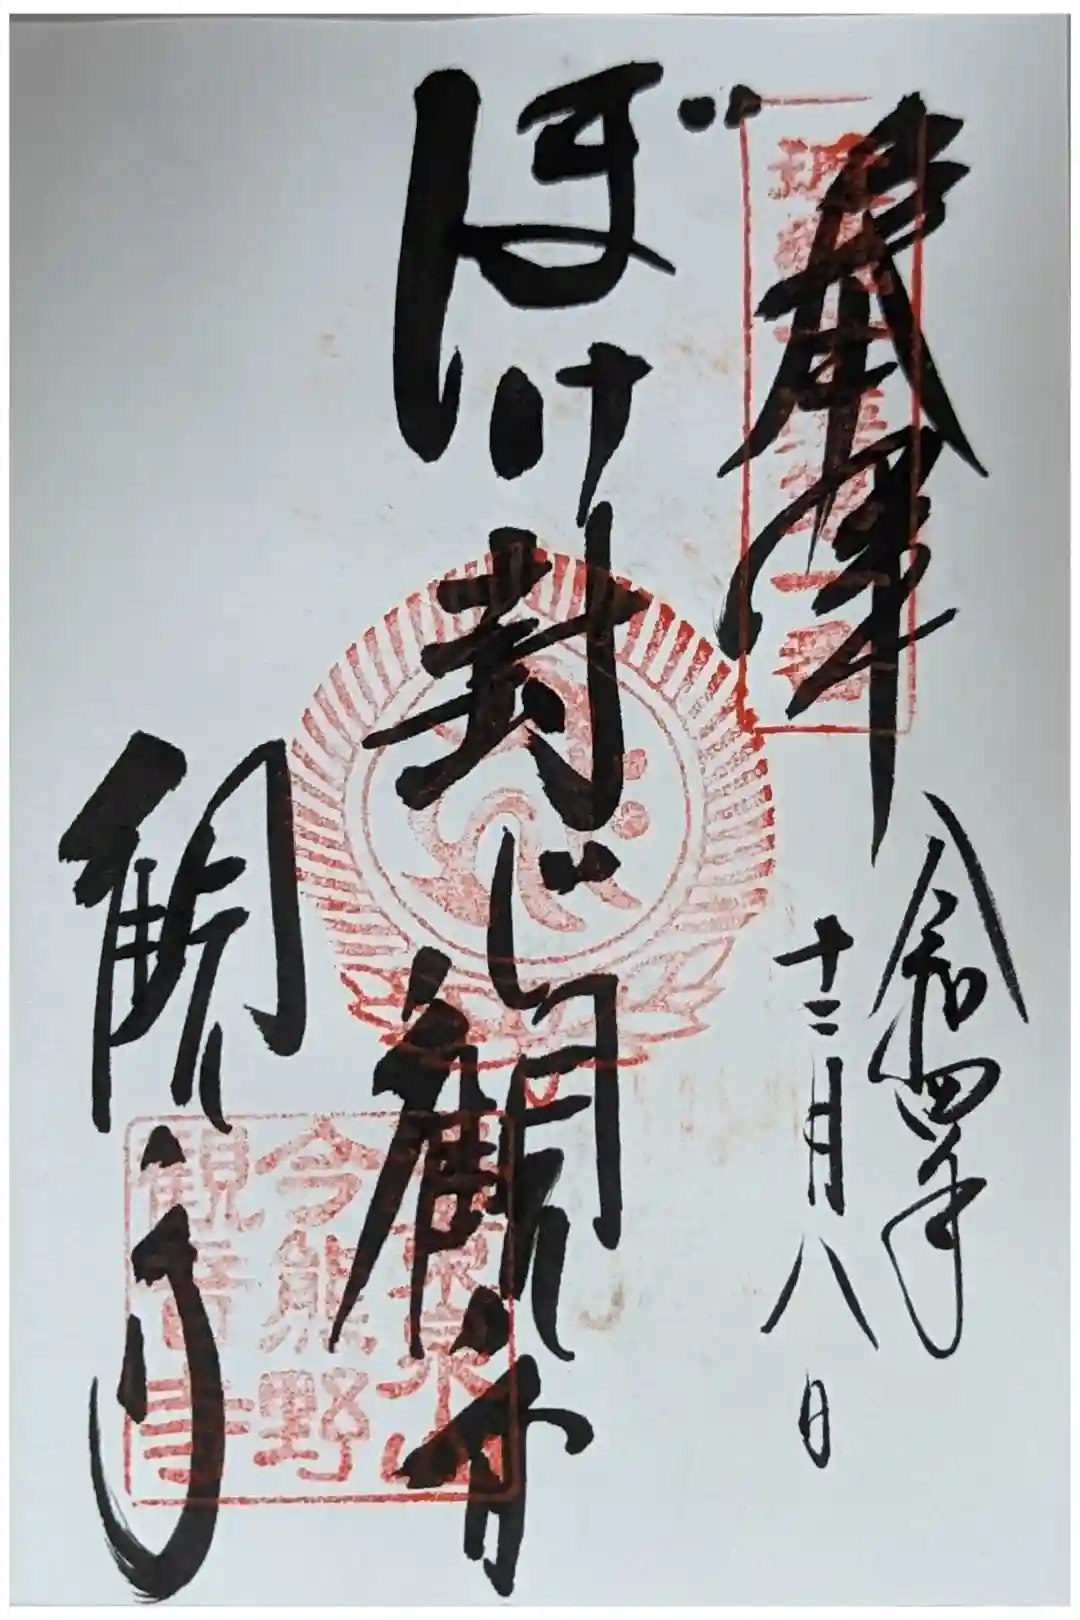 奉拝
令和四年
十二月八日
ぼけ封じ観音
観音寺
今熊野
観音寺